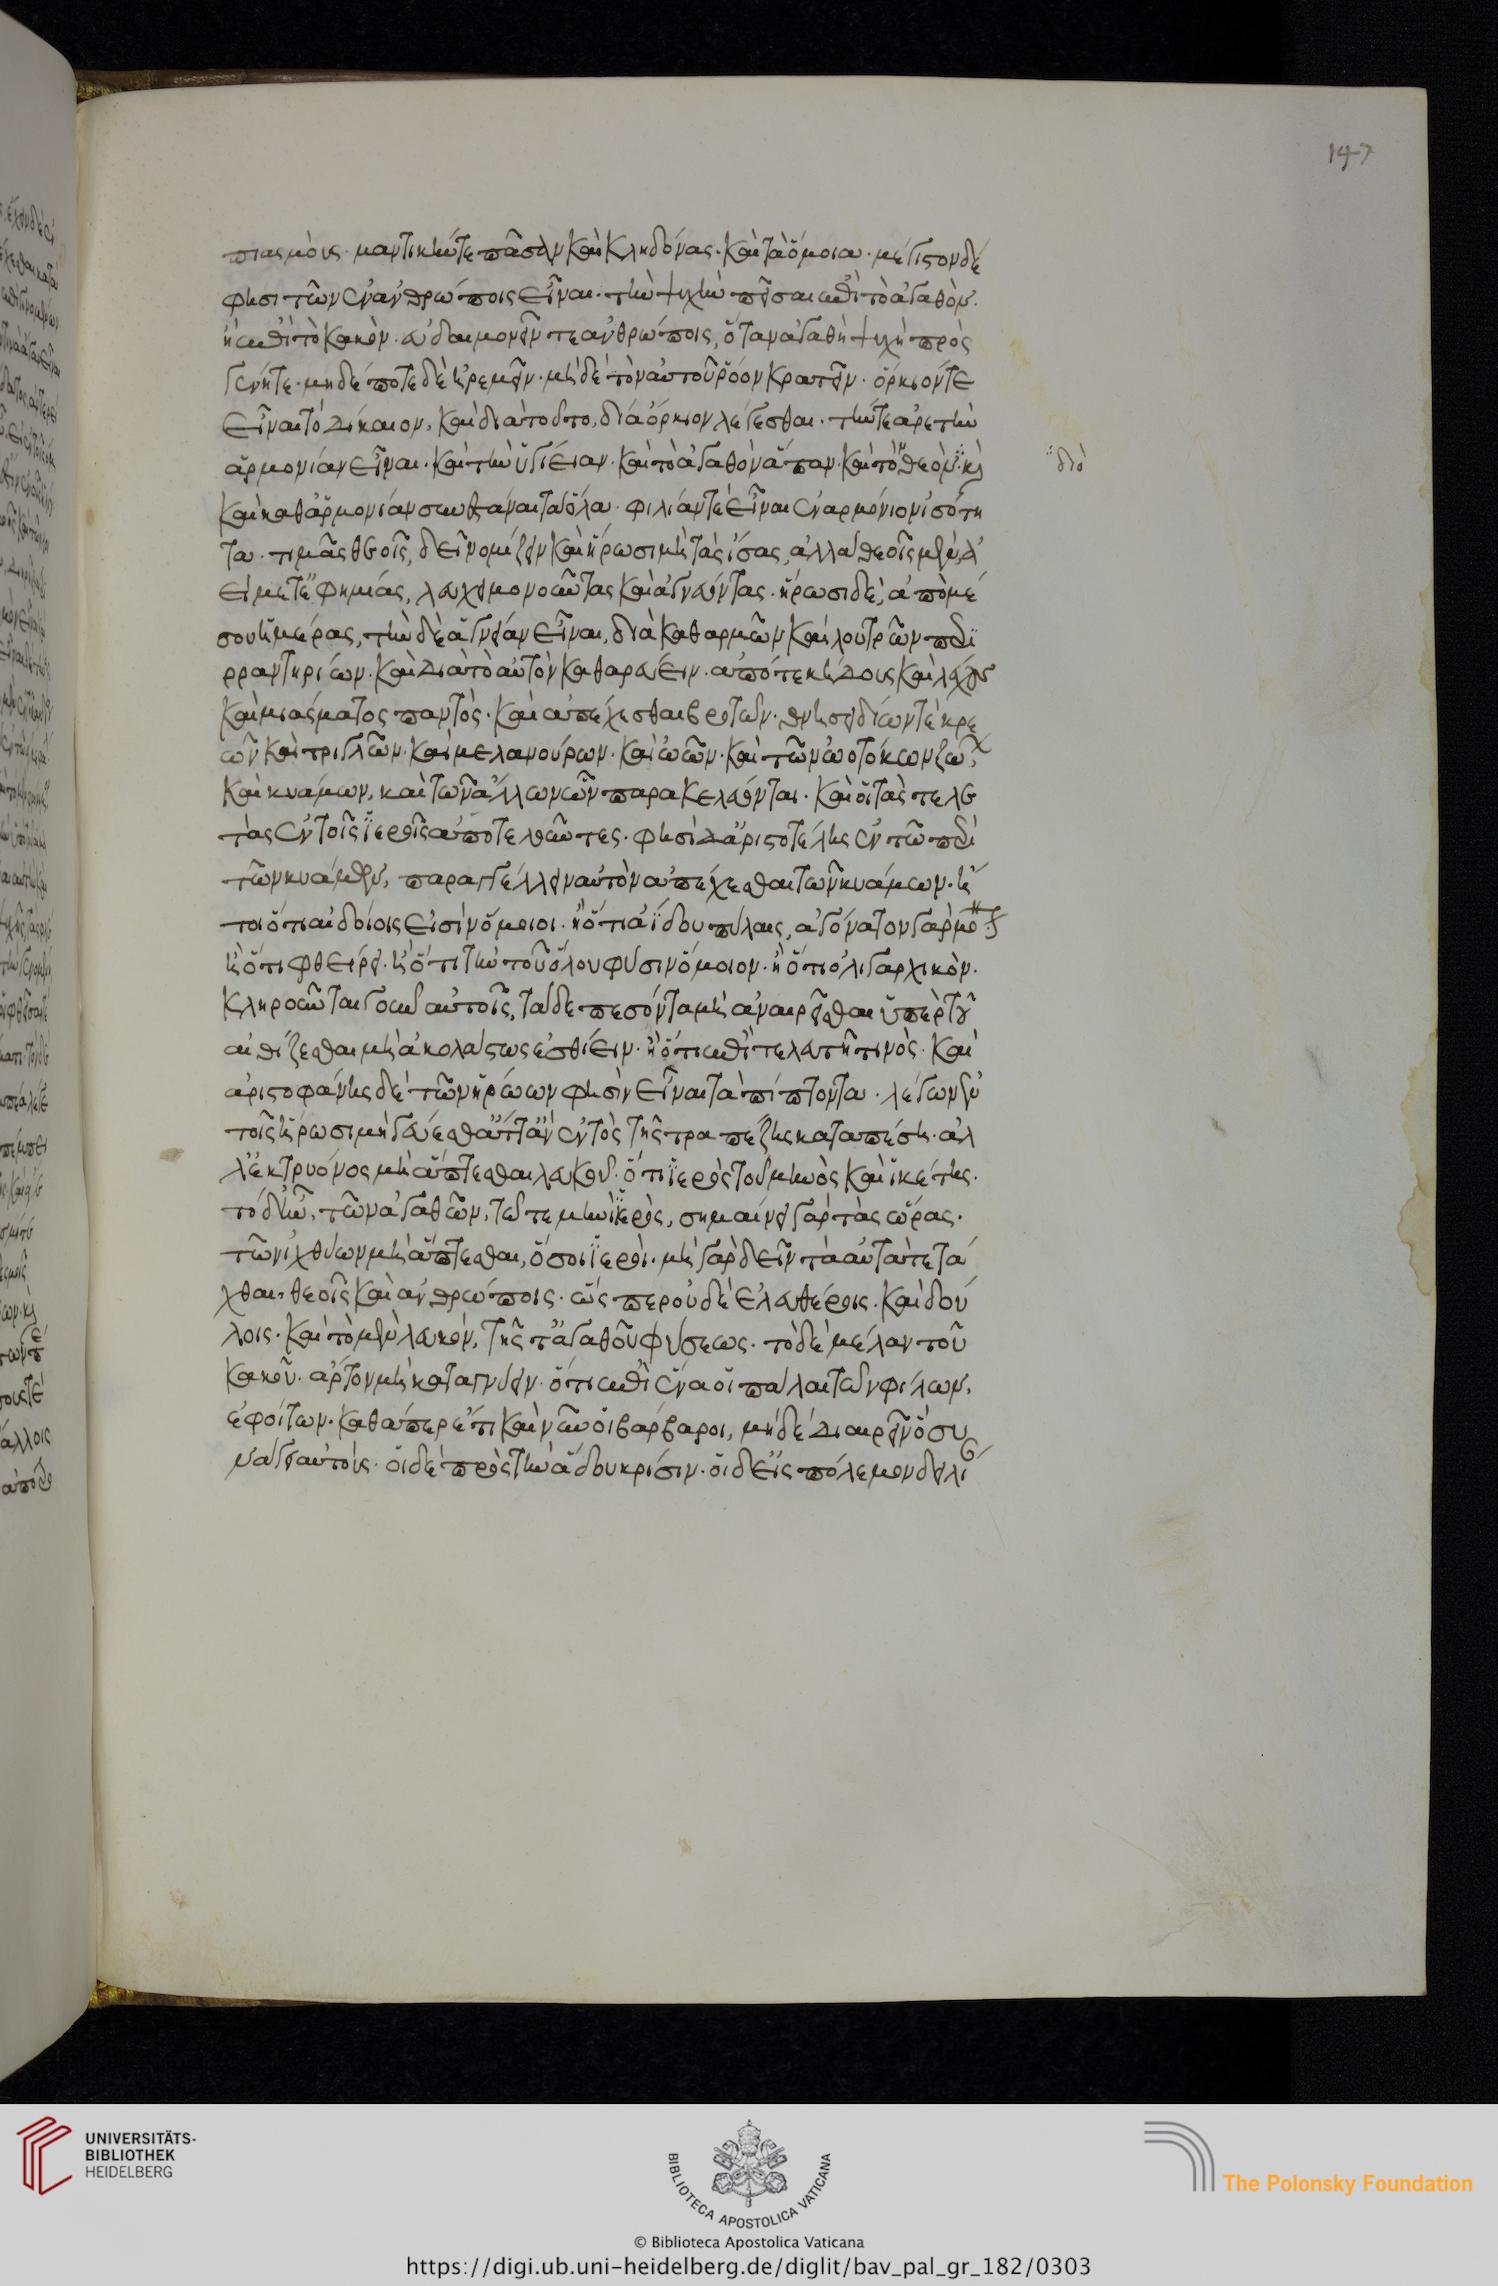 147
πιασμοὺς· μαντικήν τε πᾶσαν καὶ κληδόνας· καὶ τὰ ὅμοια· μέγιστον δέ
φησι τῶν ἐν ἀνθρώποις εἶναι· τὴν ψυχὴν πεῖσαι ἐπὶ τὸ ἀγαθὸν·
ἢ ἐπὶ τὸ κακὸν· εὐδαιμονεῖν τε ἀνθρώποις, ὅταν ἀγαθὴ ψυχὴ προσ
γένηται· μηδέποτε δὲ ἠρεμεῖν· μηδὲ τὸν αὐτοῦ ῥόον κρατεῖν· ὅρκιόν τε
εἶναι τὸ δίκαιον, καὶ διὰ τοῦτο, δία ὅρκιον λέγεσθαι· τήν τε ἀρετὴν
ἁρμονίαν εἶναι· καὶ τὴν ὑγίειαν· καὶ τὸ ἀγαθὸν ἅπαν· καὶ τὸν θεὸν· καὶ
καὶ καθ' ἁρμονίαν συνεστάναι τὰ ὅλα· φιλίαν τε εἶναι ἐναρμόνιον ἰσότη
¨διὸ
τα· τιμὰς θεοῖς, δεῖν νομίζειν καὶ ἥρωσι μὴ τὰς ἴσας, ἀλλὰ θεοῖς μὲν, ἀ
εὶ μετ' εὐφημίας, λευχειμονοῦντας καὶ ἁγνεύοντας· ἥρωσι δὲ, ἀπὸ μέ
σου ἡμέρας, τὴν δὲ ἁγνείαν εἶναι, διὰ καθαρμῶν καὶ λουτρῶν καὶ περι
ρραντηρίων· καὶ διὰ τὸ αὐτὸν καθαρεύειν· ἀπό τε κήδους καὶ λέχους
καὶ μιάσματος παντὸς· καὶ ἀπέχεσθαι βρωτῶν· θνησειδίων τὲ κρε
ῶν καὶ τριγλῶν· καὶ μελανούρων· καὶ ὠῶν· καὶ τῶν ὠοτόκων ζώων
καὶ κυάμων, καὶ τῶν ἄλλων ὧν παρακελεύονται· καὶ οἱ τὰς τελε
τὰς ἐν τοῖς ἱεροῖς ἀποτελοῦντες· φησὶ δ' ἀριστοτέλης ἐν τῶ περὶ
τῶν κυάμων, παραγγέλλειν αὐτὸν ἀπέχεσθαι τῶν κυάμων· ἤ
τοι ὅτι αἰδοίοις εἰσὶν ὅμοιοι· ἢ ὅτι ἀΐδου πύλαις, ἀγόνατον γὰρ μόνον
ἢ ὅτι φθείρει· ἢ ὅτι τῆ τοῦ ὅλου φύσιν ὅμοιον· ἢ ὅτι ὀλιγαρχικὸν·
κληροῦνται γοῦν αὐτοῖς, τὰ δὲ πεσόντα μὴ ἀναιρεῖσθαι ὑπὲρ τοῦ
ἐθίζεσθαι μὴ ἀκολάστως ἐσθίειν· ἢ ὅτι ἐπὶ τελευτῆ τινὸς· καὶ
ἀριστοφάνης δὲ τῶν ἡρώων φησὶν εἶναι τὰ πίπτοντα· λέγων ἐν
τοῖς ἥρωσι μὴ γεύεσθαι ἅττ' ἂν ἐντὸς τῆς τραπέζης καταπέση· ἀλ
λεκτρυόνος μὴ ἅπτεσθαι λευκοῦ· ὅτι ἱερὸς τοῦ μηνὸς καὶ ἱκέτης·
τὸ δ' ἦν, τῶν ἀγαθῶν, τῶ τε μηνὶ ἱερὸς, σημαίνει γὰρ τὰς ὥρας·
τῶν ἰχθύων μὴ ἅπτεσθαι, ὅσοι ἱεροὶ· μὴ γὰρ δεῖν τὰ αὐτὰ τετά
χθαι θεοῖς καὶ ἀνθρώποις· ὥσπερ οὐδὲ ἐλευθέροις· καὶ δού
λοις· καὶ τὸ μὲν λευκόν, τῆς τ' ἀγαθοῦ φύσεως· τὸ δὲ μέλαν τοῦ
κακοῦ· ἄρτον μὴ καταγνύειν· ὅτι ἐπὶ ἕνα οἱ πάλαι τῶν φίλων,
ἐφοίτων· καθάπερ ἔτι καὶ νῦν οἱ βάρβαροι, μηδὲ διαιρεῖν ὃ συ
νάγει αὐτούς· οἱ δὲ πρὸς τὴν ἅδου κρίσιν· οἱ δ' εἰς πόλεμον δειλί
UNIVERSITÄTS-
BIBLIOTHEK
HEIDELBERG
BIBLIOTECA APOSTOLICA VATICANA
The Polonsky Foundation
© Biblioteca Apostolica Vaticana
https://digi.ub.uni-heidelberg.de/diglit/bav_pal_gr_182/0303